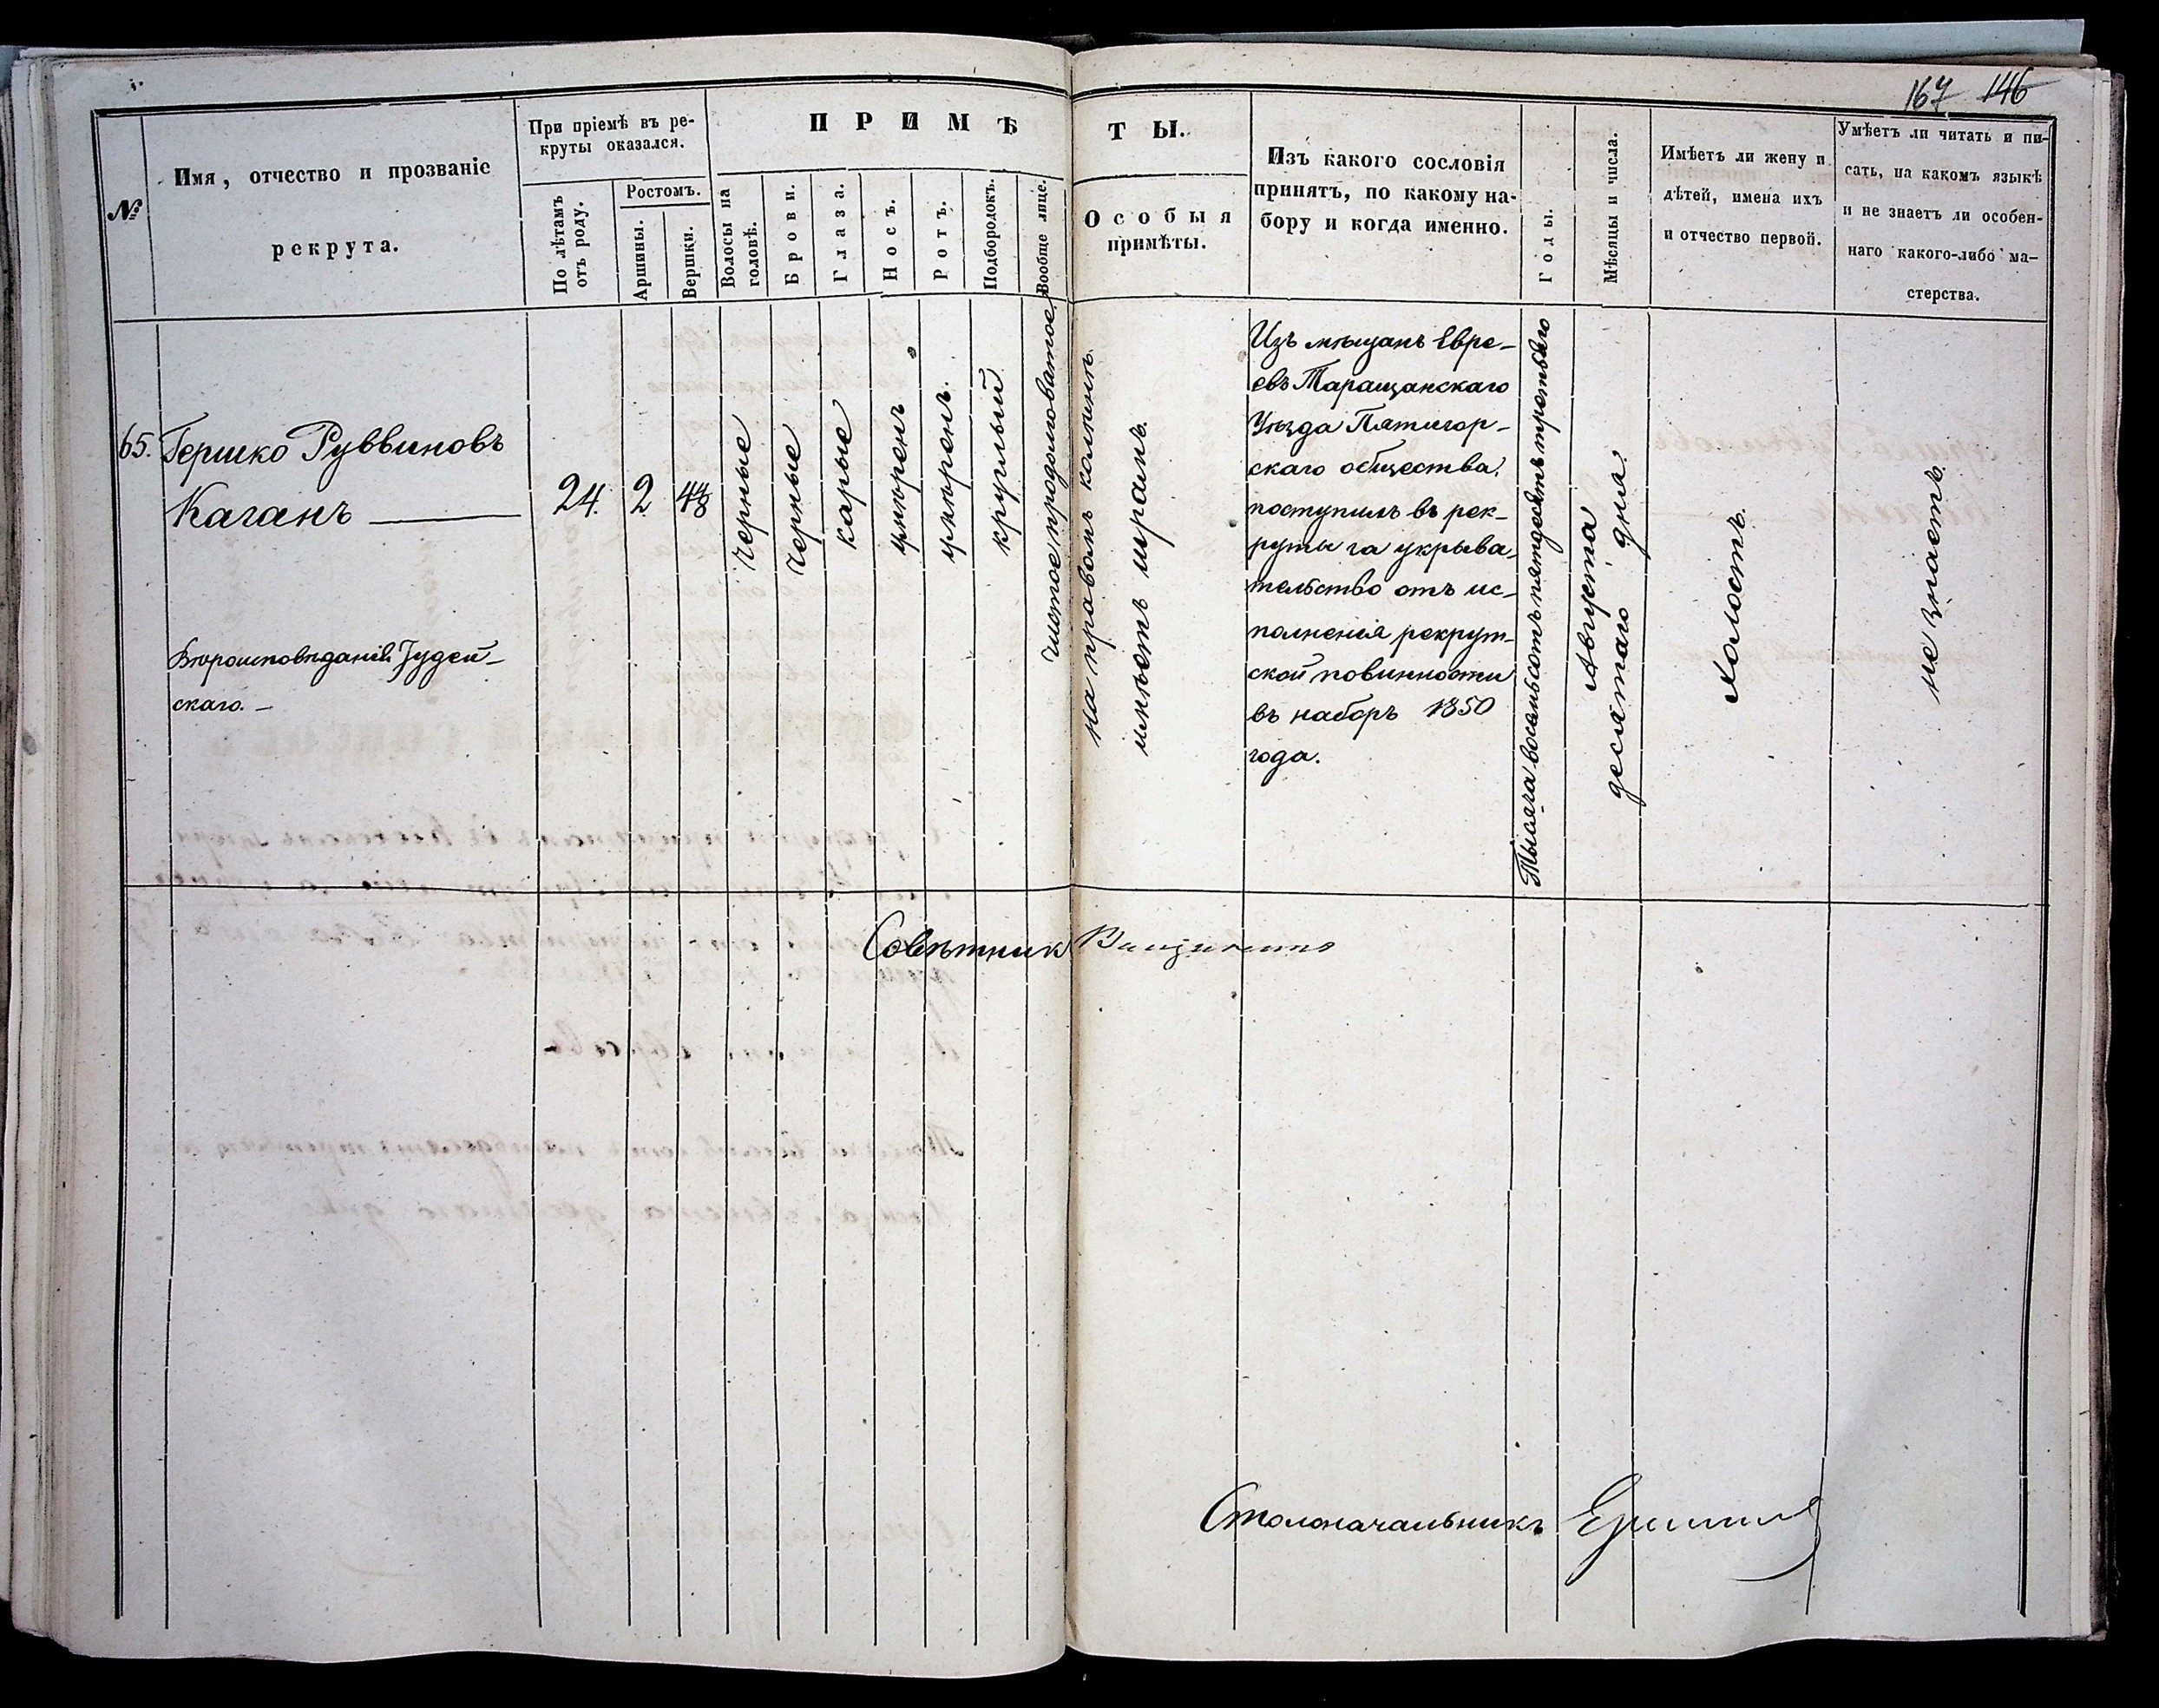 167 146
№
Имя, отчество и прозваніе
рекрута.
При пріемѣ въ ре-
круты оказался.
По лѣтамъ
отъ роду.
Ростомъ.
Аршины.
Вершки.
ПРИМѢ
Волосы на
головѣ.
Брови.
Глаза.
Носъ.
Ротъ.
Подбородокъ.
Вообще лице.
ТЫ.
Особыя
примѣты.
Изъ какого сословія
принятъ, по какому на-
бору и когда именно.
Годы.
Мѣсяцы и числа.
Имѣетъ ли жену и
дѣтей, имена ихъ
и отчество первой.
Умѣетъ ли читать и пи-
сать, на какомъ языкѣ
и не знаетъ ли особен-
наго какого-либо ма-
стерства.
65.
Гершко Руввиновъ
Каганъ
Вѣроисповѣданія Іудей-
скаго.
24.
2
4⅘
черные
черные
карые
умѣренъ
умѣренъ.
круглый
чистое продолговатое,
на правомъ колѣнѣ
имѣетъ шрамъ.
Изъ мѣщанъ Евре-
евъ Таращанскаго
Уѣзда Пятигор-
скаго общества,
поступилъ въ рек-
руты за укрыва-
тельство отъ ис-
полненія рекрут-
ской повинности
въ наборъ 1850
года.
Тысяча восемьсотъ пятдесятъ третьяго
Августа
десятаго дня.
Холостъ.
не знаетъ.
Совѣтник
Столоначальникъ